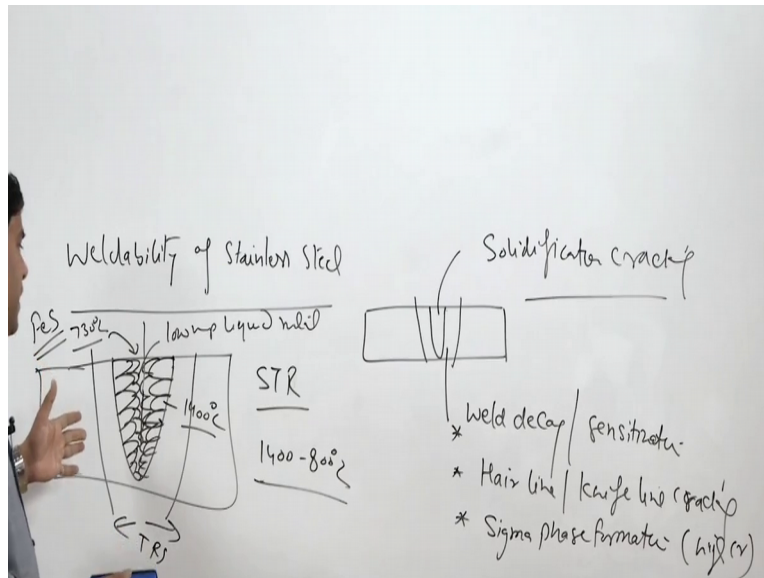 Weldability of Stainless Steel
FeS 730°C low mp liquid metal
STR
1400°C
1400-800°C
TRS
Solidification cracking
* Weld decay / Sensitization
* Hair line / Knife line cracking
* Sigma phase formation (high Cr)